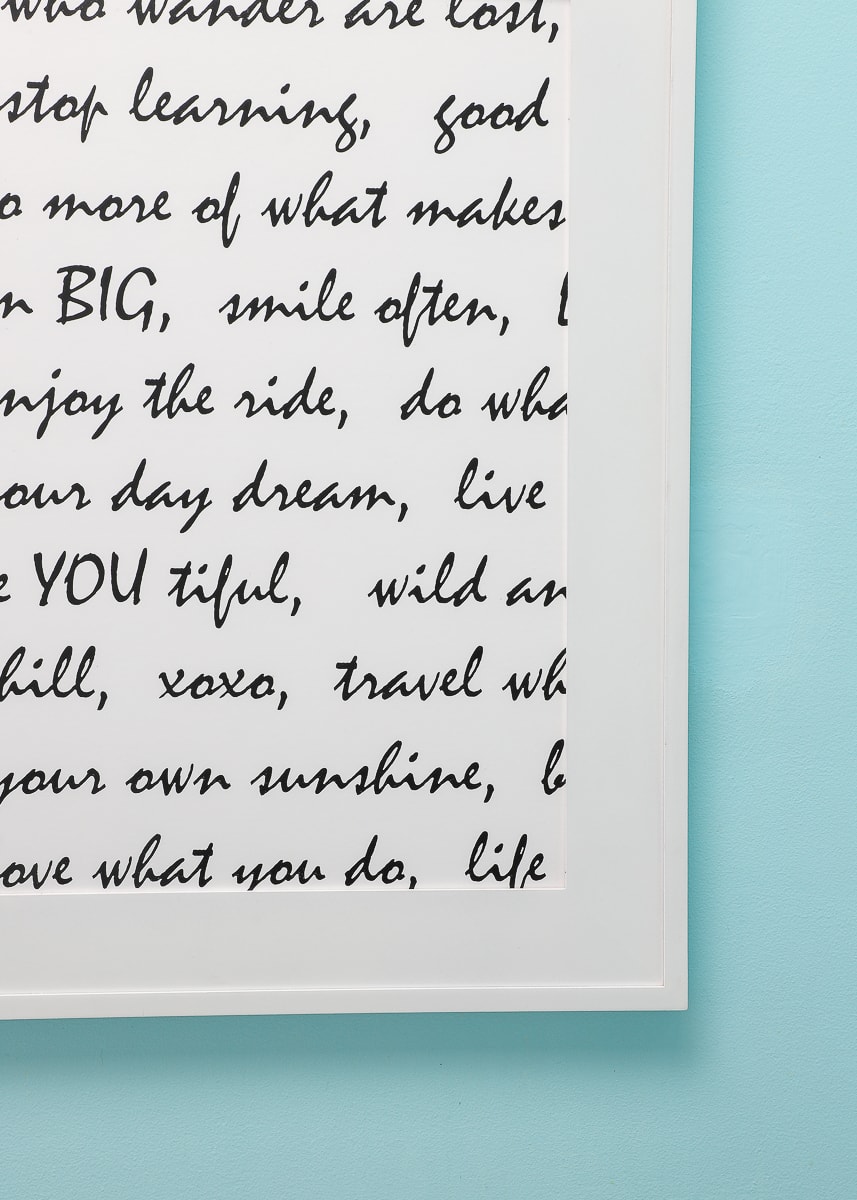 who wander are lost,
stop learning, good
o more of what makes
n BIG, smile often,
njoy the ride, do wha
our day dream, live
e YOU tiful, wild an
hill, xoxo, travel wh
your own sunshine, b
ove what you do, life